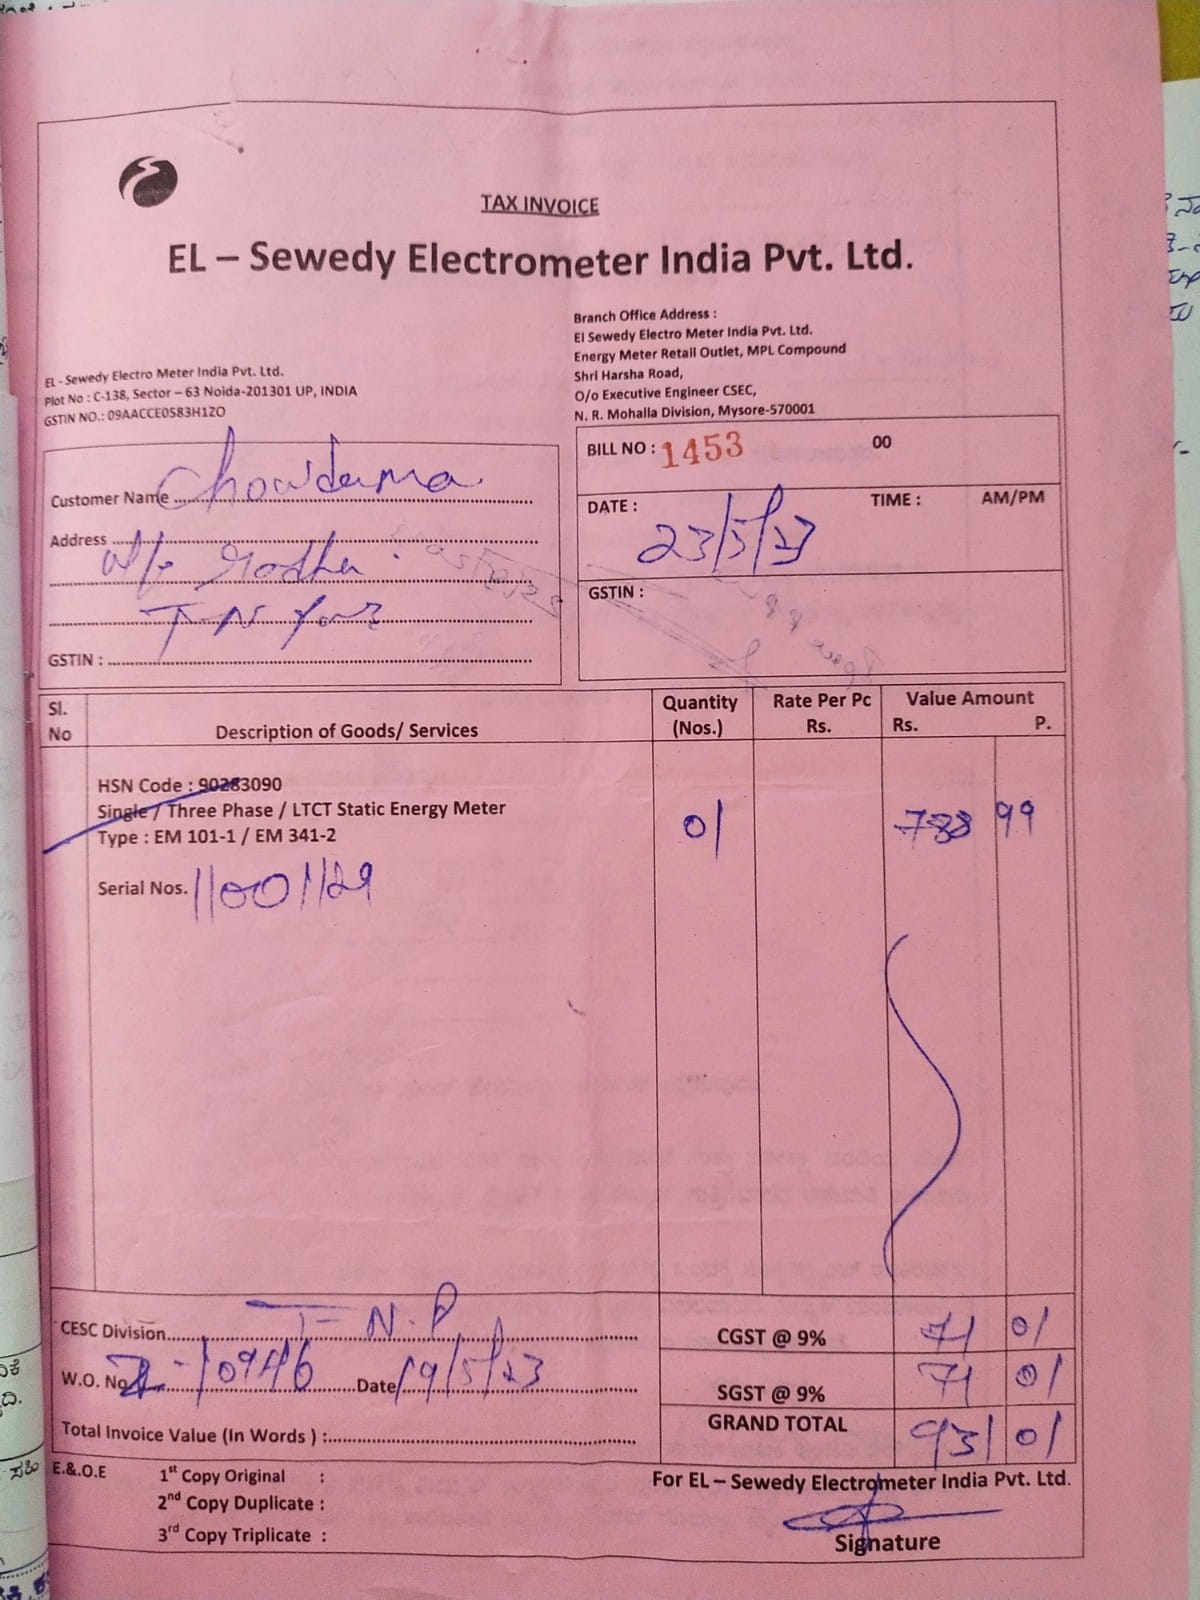 TAX INVOICE
EL – Sewedy Electrometer India Pvt. Ltd.
Branch Office Address :
El Sewedy Electro Meter India Pvt. Ltd.
Energy Meter Retail Outlet, MPL Compound
Shri Harsha Road,
O/o Executive Engineer CSEC,
N. R. Mohalla Division, Mysore-570001
EL - Sewedy Electro Meter India Pvt. Ltd.
Plot No : C-138, Sector – 63 Noida-201301 UP, INDIA
GSTIN NO.: 09AACCE0583H1ZO
Customer Name
Address
GSTIN :
BILL NO : 1453 00
DATE : 23/5/23 TIME : AM/PM
GSTIN :
Sl. No Description of Goods/ Services Quantity (Nos.) Rate Per Pc Rs. Value Amount Rs. P.
HSN Code : 90283090
Single / Three Phase / LTCT Static Energy Meter 01 788 99
Type : EM 101-1 / EM 341-2
Serial Nos. 11001129
CESC Division T-N.P CGST @ 9% 71 01
W.O. No. Date 19/5/23 SGST @ 9% 71 01
Total Invoice Value (In Words ) : GRAND TOTAL 931 01
E.&.O.E 1st Copy Original :
2nd Copy Duplicate :
3rd Copy Triplicate :
For EL – Sewedy Electrometer India Pvt. Ltd.
Signature